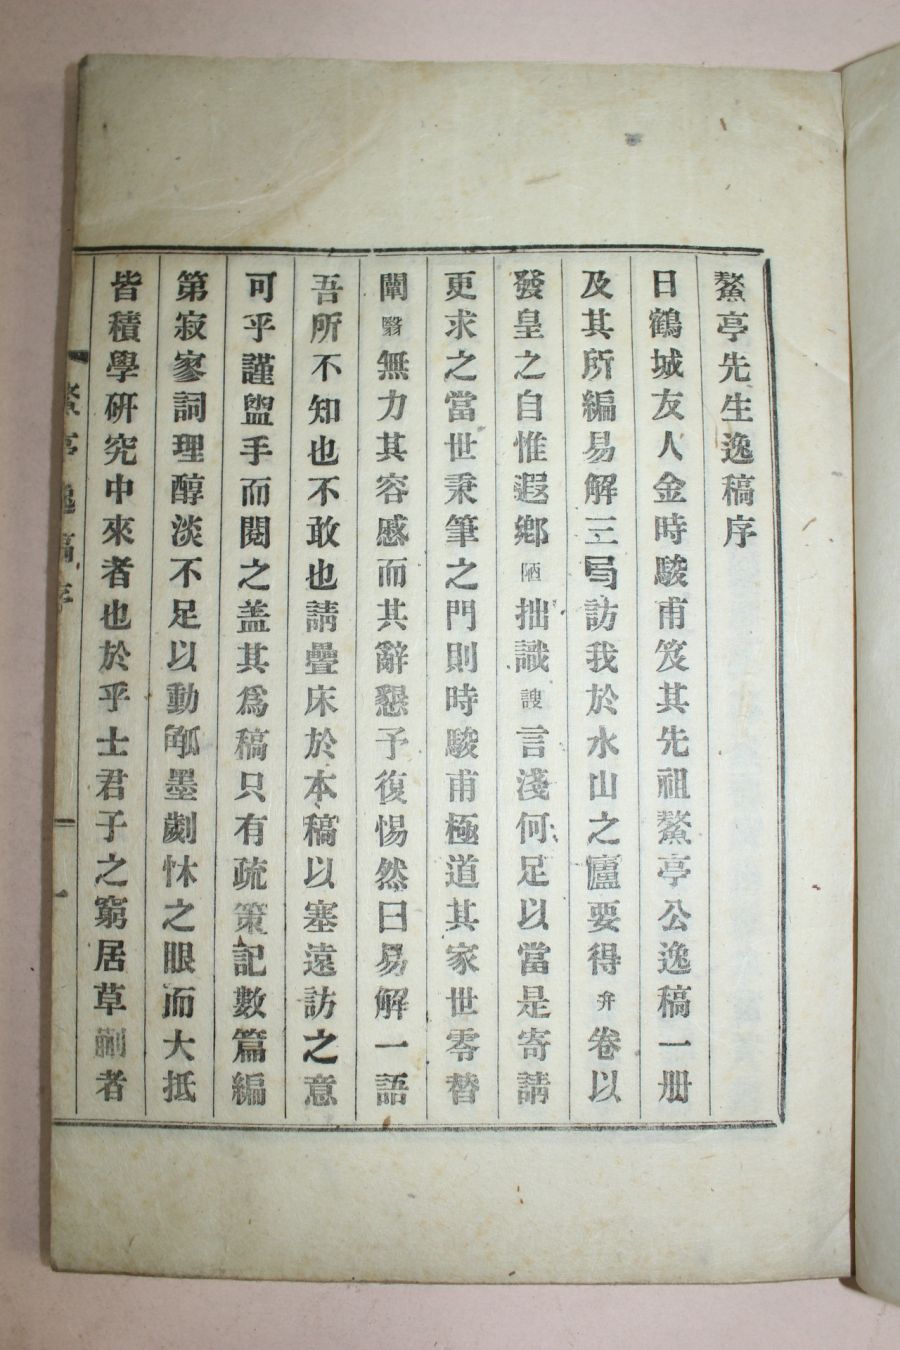 鰲亭先生逸稿序
日鶴城友人金時駿甫笈其先祖鰲亭公逸稿一册
及其所編易解三局訪我於水山之廬要得弁卷以
發皇之自惟遐鄉陋拙識謏言淺何足以當是寄請
更求之當世秉筆之門則時駿甫極道其家世零替
闡翳無力其容慼而其辭懇予復惕然曰易解一語
吾所不知也不敢也請疊床於本稿以塞遠訪之意
可乎謹盥手而閱之盖其爲稿只有疏策記數篇編
第寂寥詞理醇淡不足以動觚墨劌怵之眼而大抵
皆積學硏究中來者也於乎士君子之窮居草者
鰲亭逸稿序
一